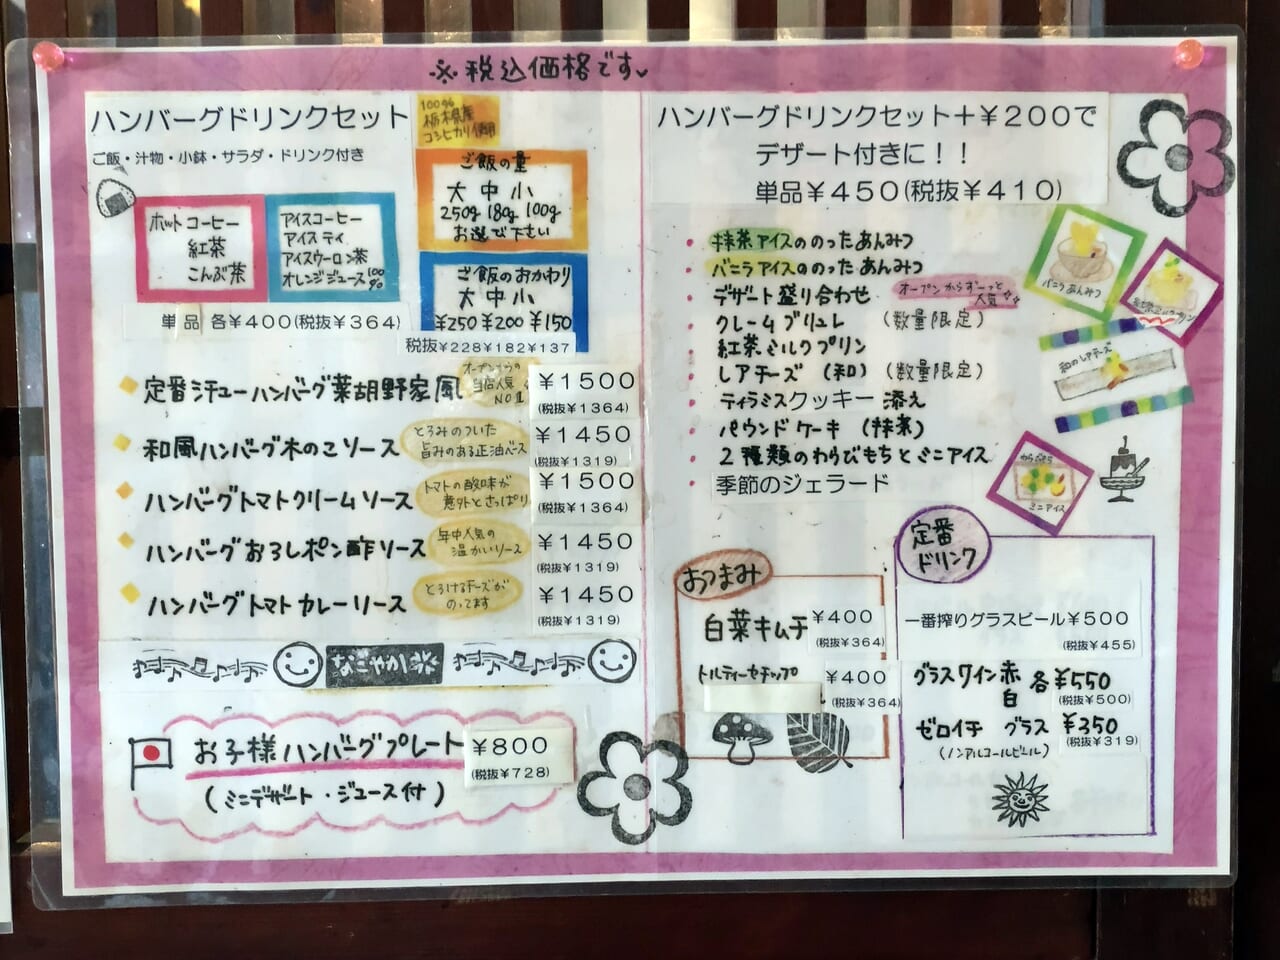 ※税込価格です
ハンバーグドリンクセット
ご飯・汁物・小鉢・サラダ・ドリンク付き
100%
栃木県産
コシヒカリ使用
ホットコーヒー
紅茶
こんぶ茶
アイスコーヒー
アイスティ
アイスウーロン茶
オレンジジュース100%
単品 各¥400(税抜¥364)
ご飯の量
大 中 小
250g 180g 100g
お選び下さい
ご飯のおかわり
大 中 小
¥250 ¥200 ¥150
税抜¥228¥182¥137
定番シチューハンバーグ葉胡野家風
オープンからの
当店人気
NO1
¥1500
(税抜¥1364)
和風ハンバーグ木のこソース
とろみのついた
旨みのある正油ベース
¥1450
(税抜¥1319)
ハンバーグトマトクリームソース
トマトの酸味が
意外とさっぱり
¥1500
(税抜¥1364)
ハンバーグおろしポン酢ソース
年中人気の
温かいソース
¥1450
(税抜¥1319)
ハンバーグトマトカレーソース
とろけるチーズが
のってます
¥1450
(税抜¥1319)
お子様ハンバーグプレート
¥800
(税抜¥728)
(ミニデザート・ジュース付)
ハンバーグドリンクセット+¥200で
デザート付きに!!
単品¥450(税抜¥410)
抹茶アイスののったあんみつ
バニラアイスののったあんみつ
デザート盛り合わせ
オープンからずーっと
人気
クレームブリュレ (数量限定)
紅茶ミルクプリン
レアチーズ (和) (数量限定)
ティラミスクッキー添え
パウンドケーキ (抹茶)
2種類のわらびもちとミニアイス
季節のジェラード
バニラあんみつ
紅茶ミルクプリン
和のレアチーズ
わらびもち
ミニアイス
おつまみ
白菜キムチ
¥400
(税抜¥364)
トルティーヤチップ
¥400
(税抜¥364)
定番
ドリンク
一番搾りグラスビール¥500
(税抜¥455)
グラスワイン赤
白
各¥550
(税抜¥500)
ゼロイチ グラス ¥350
(ノンアルコールビール)
(税抜¥319)